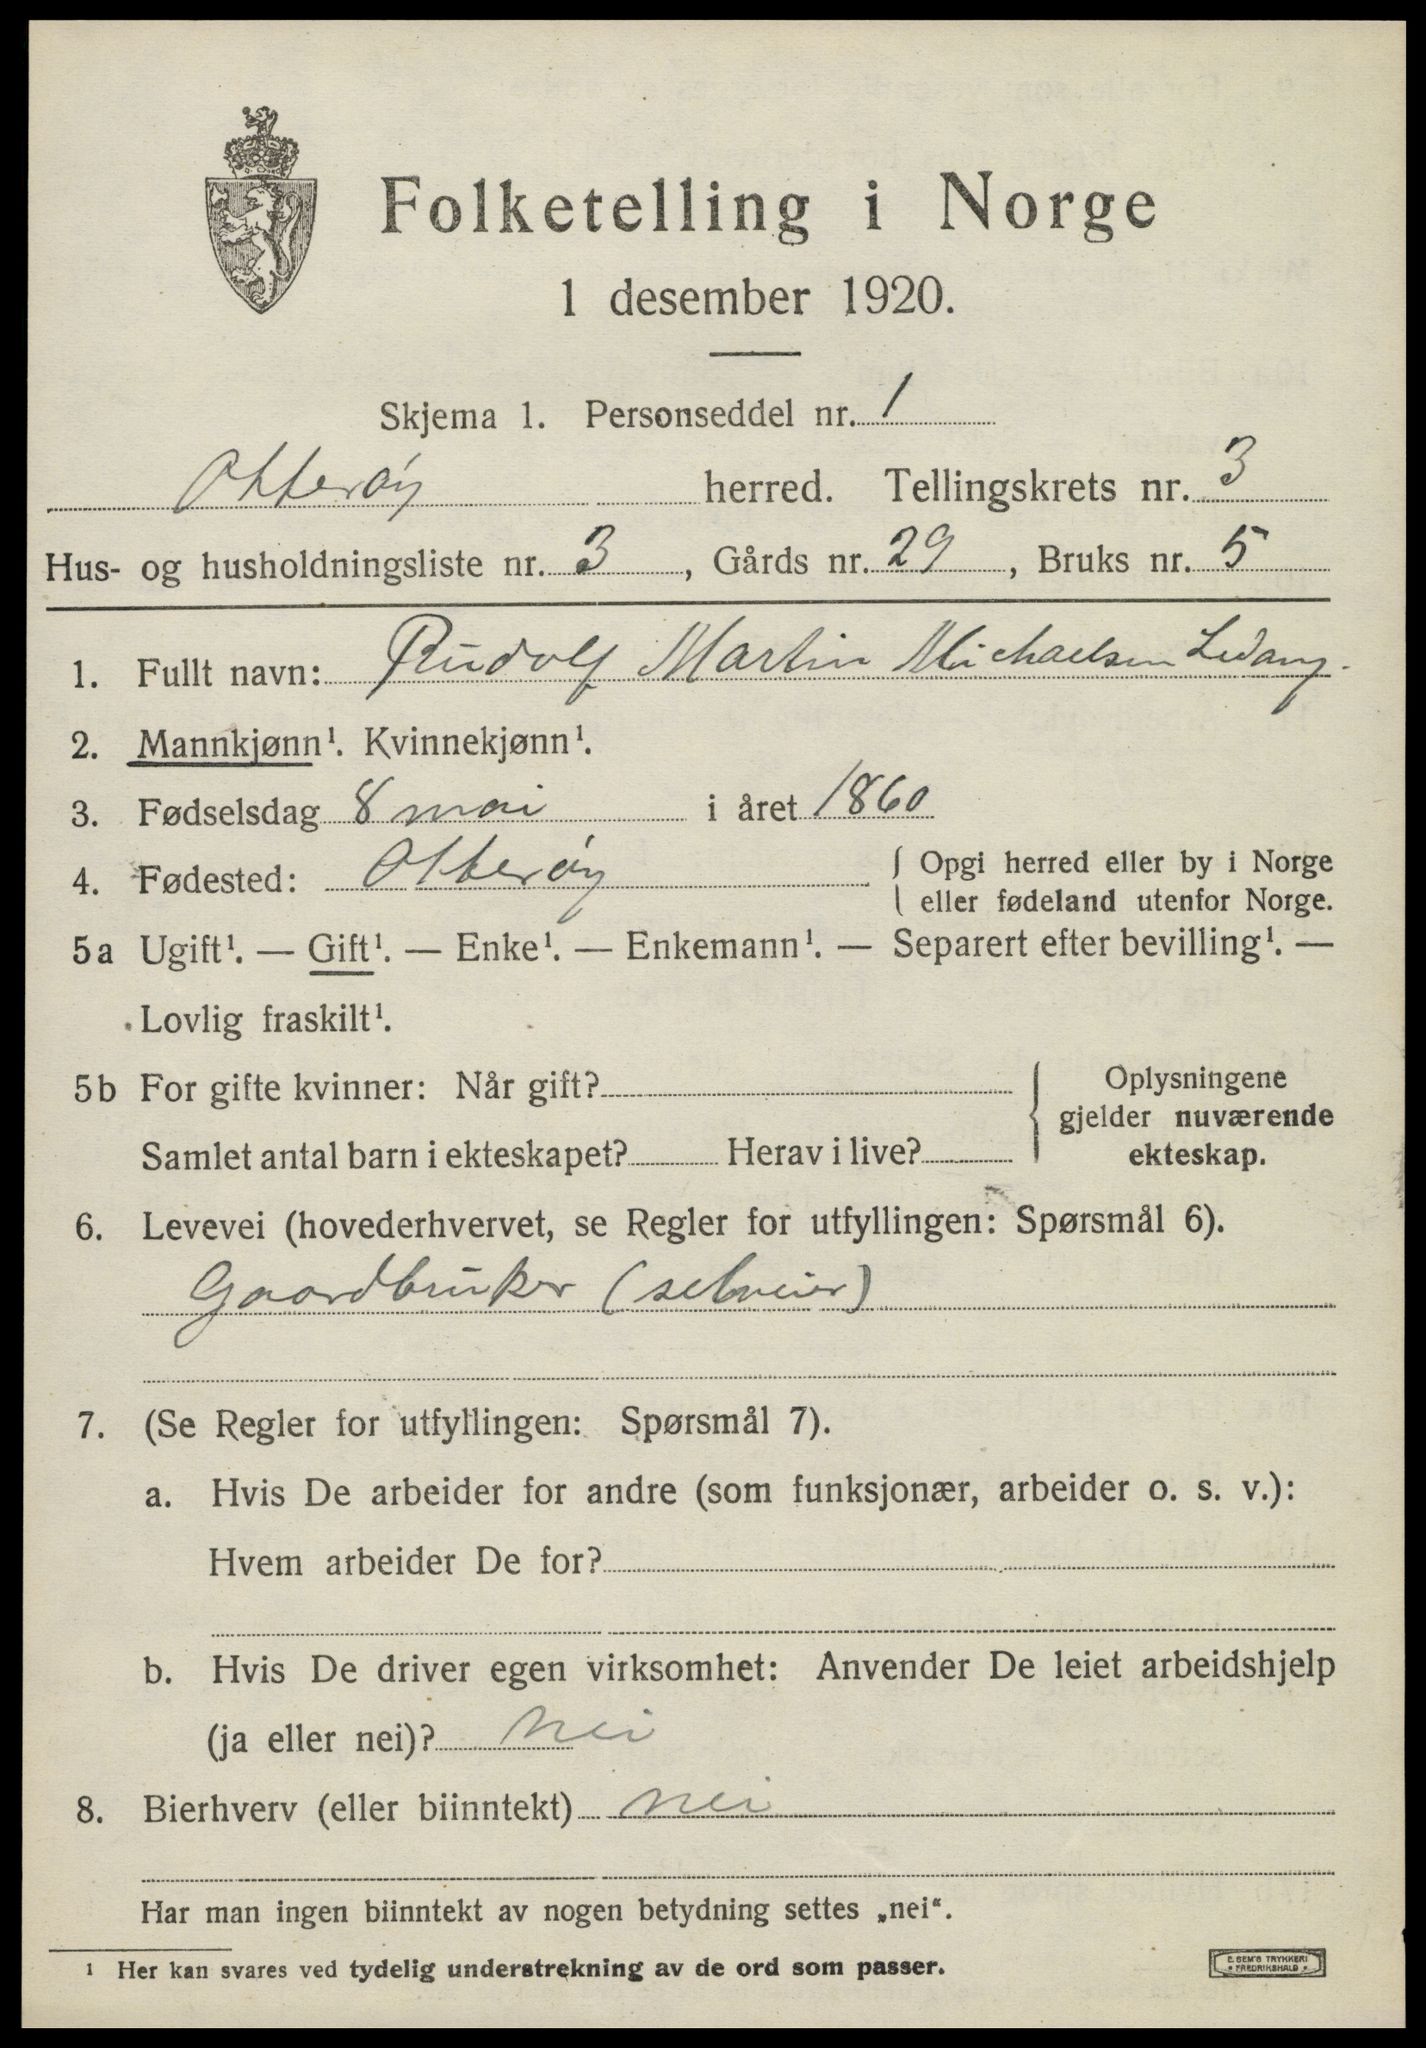 Folketelling i Norge
1 desember 1920.
Skjema 1. Personseddel nr. 1
Otterøy herred. Tellingskrets nr. 3
Hus- og husholdningsliste nr. 3, Gårds nr. 29, Bruks nr. 5
1. Fullt navn: Rudolf Martin Michaelsen
2. Mannkjønn¹. Kvinnekjønn¹.
3. Fødselsdag 8 mai i året 1860
4. Fødested: Otterøy { Opgi herred eller by i Norge
eller fødeland utenfor Norge.
5a Ugift¹. — Gift¹. — Enke¹. — Enkemann¹. — Separert efter bevilling¹. —
Lovlig fraskilt¹.
5b For gifte kvinner: Når gift?
Samlet antal barn i ekteskapet? Herav i live?
{ Oplysningene
gjelder nuværende
ekteskap.
6. Levevei (hovederhvervet, se Regler for utfyllingen: Spørsmål 6).
Gaardbruker (selveier)
7. (Se Regler for utfyllingen: Spørsmål 7).
a. Hvis De arbeider for andre (som funksjonær, arbeider o. s. v.):
Hvem arbeider De for?
b. Hvis De driver egen virksomhet: Anvender De leiet arbeidshjelp
(ja eller nei)? nei
8. Bierhverv (eller biinntekt) nei
Har man ingen biinntekt av nogen betydning settes „nei“.
¹ Her kan svares ved tydelig understrekning av de ord som passer.
E. SEM'S TRYKKERI
• FREDRIKSHALD •